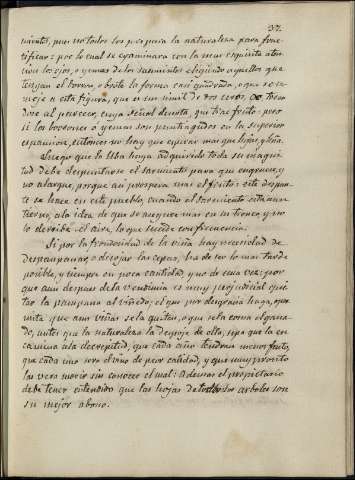 37.
mientos, pues no todos los prepara la naturaleza para fruc-
tificar: por lo cual se ecsaminara con la mas esquisita aten-
cion los ojos, o yemas de los sarmientos eligiendo aquellos que
tengan el boton, o brote la forma casi quadrada, o que se ase-
meje a esta figura, que es un simil de dos ceros, OO, tocan-
dose al parecer, cuya señal denota, que trae fruto: pero
si los botones o yemas son puntiagudos en la superior
espansion, entonces no hay que esperar mas que hojas, y leña.
Luego que la Uba haya adquirido toda su magni-
tud debe despuntarse el sarmiento para que engruese, y
no alargue, porque asi prospera mas el fruto: este despun-
te se hace en este pueblo, cuando el sarmiento esta mas
tierno, a la idea de que se asegure mas en su tronco, y no
lo derribe el aire, lo que sucede con frecuencia.
Si por la frondosidad de la viña hay necesidad de
despampanar, o desojar las cepas, ha de ser lo mas tarde
posible, y siempre en poca cantidad, y no de una vez: por
que aun despues de la vendimia es muy perjudicial qui-
tar la pampana al viñedo; el que por desgracia haga, o per-
mita que a sus viñas se la quiten, o que se la coma el gana-
do, antes que la naturaleza la despoje de ella, sepa que la en-
camina a la decrepitud, que cada año tendran menos fruto,
que cada uno sera el vino de peor calidad, y que muy pronto
las vera morir sin conocer el mal: Ademas el propietario
debe tener entendido que las hojas de todos los arboles son
su mejor abono.